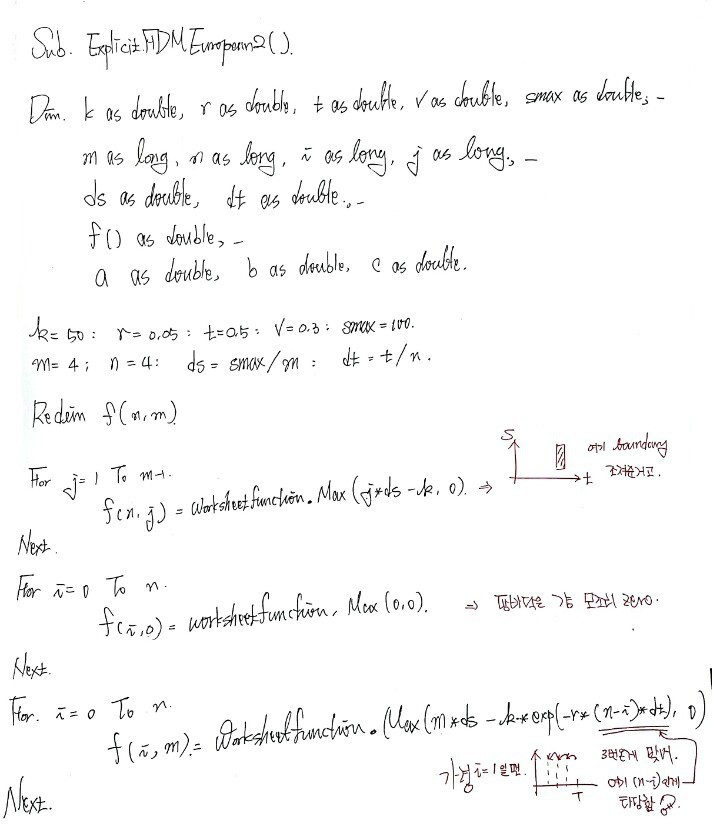 Sub. ExplicitFDMEuropean2().
Dim. k as double, r as double, t as double, v as double, smax as double, _
m as long, n as long, i as long, j as long, _
ds as double, dt as double, _
f() as double, _
a as double, b as double, c as double.
k=50 : r=0.05 : t=0.5 : V=0.3 : smax=100.
m=4 ; n=4: ds = smax/m : dt = t/n.
Redim f(n,m)
For j=1 To m-1.
f(n,j) = worksheetfunction.Max(j*ds-k, 0). ⇒
S
t
여기 boundary
조건준거고.
Next.
For i=0 To n.
f(i,0) = worksheetfunction. Max(0,0). ⇒ 맨바닥은 걍 모조리 zero.
Next.
For. i=0 To n.
f(i,m) = Worksheetfunction.(Max(m*ds-k*exp(-r*(n-i)*dt), 0)
가령 i=1일면.
T
3번인게 맞어.
여기 (n-i)인게
타당함
Next.